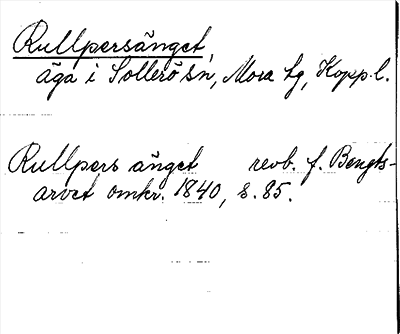 Rullpersänget,
äga i Sollerö sn, Mora tg, Kopp. l.
Rullpers änget revb. f. Bengts-
arvet omkr. 1840, s. 85.